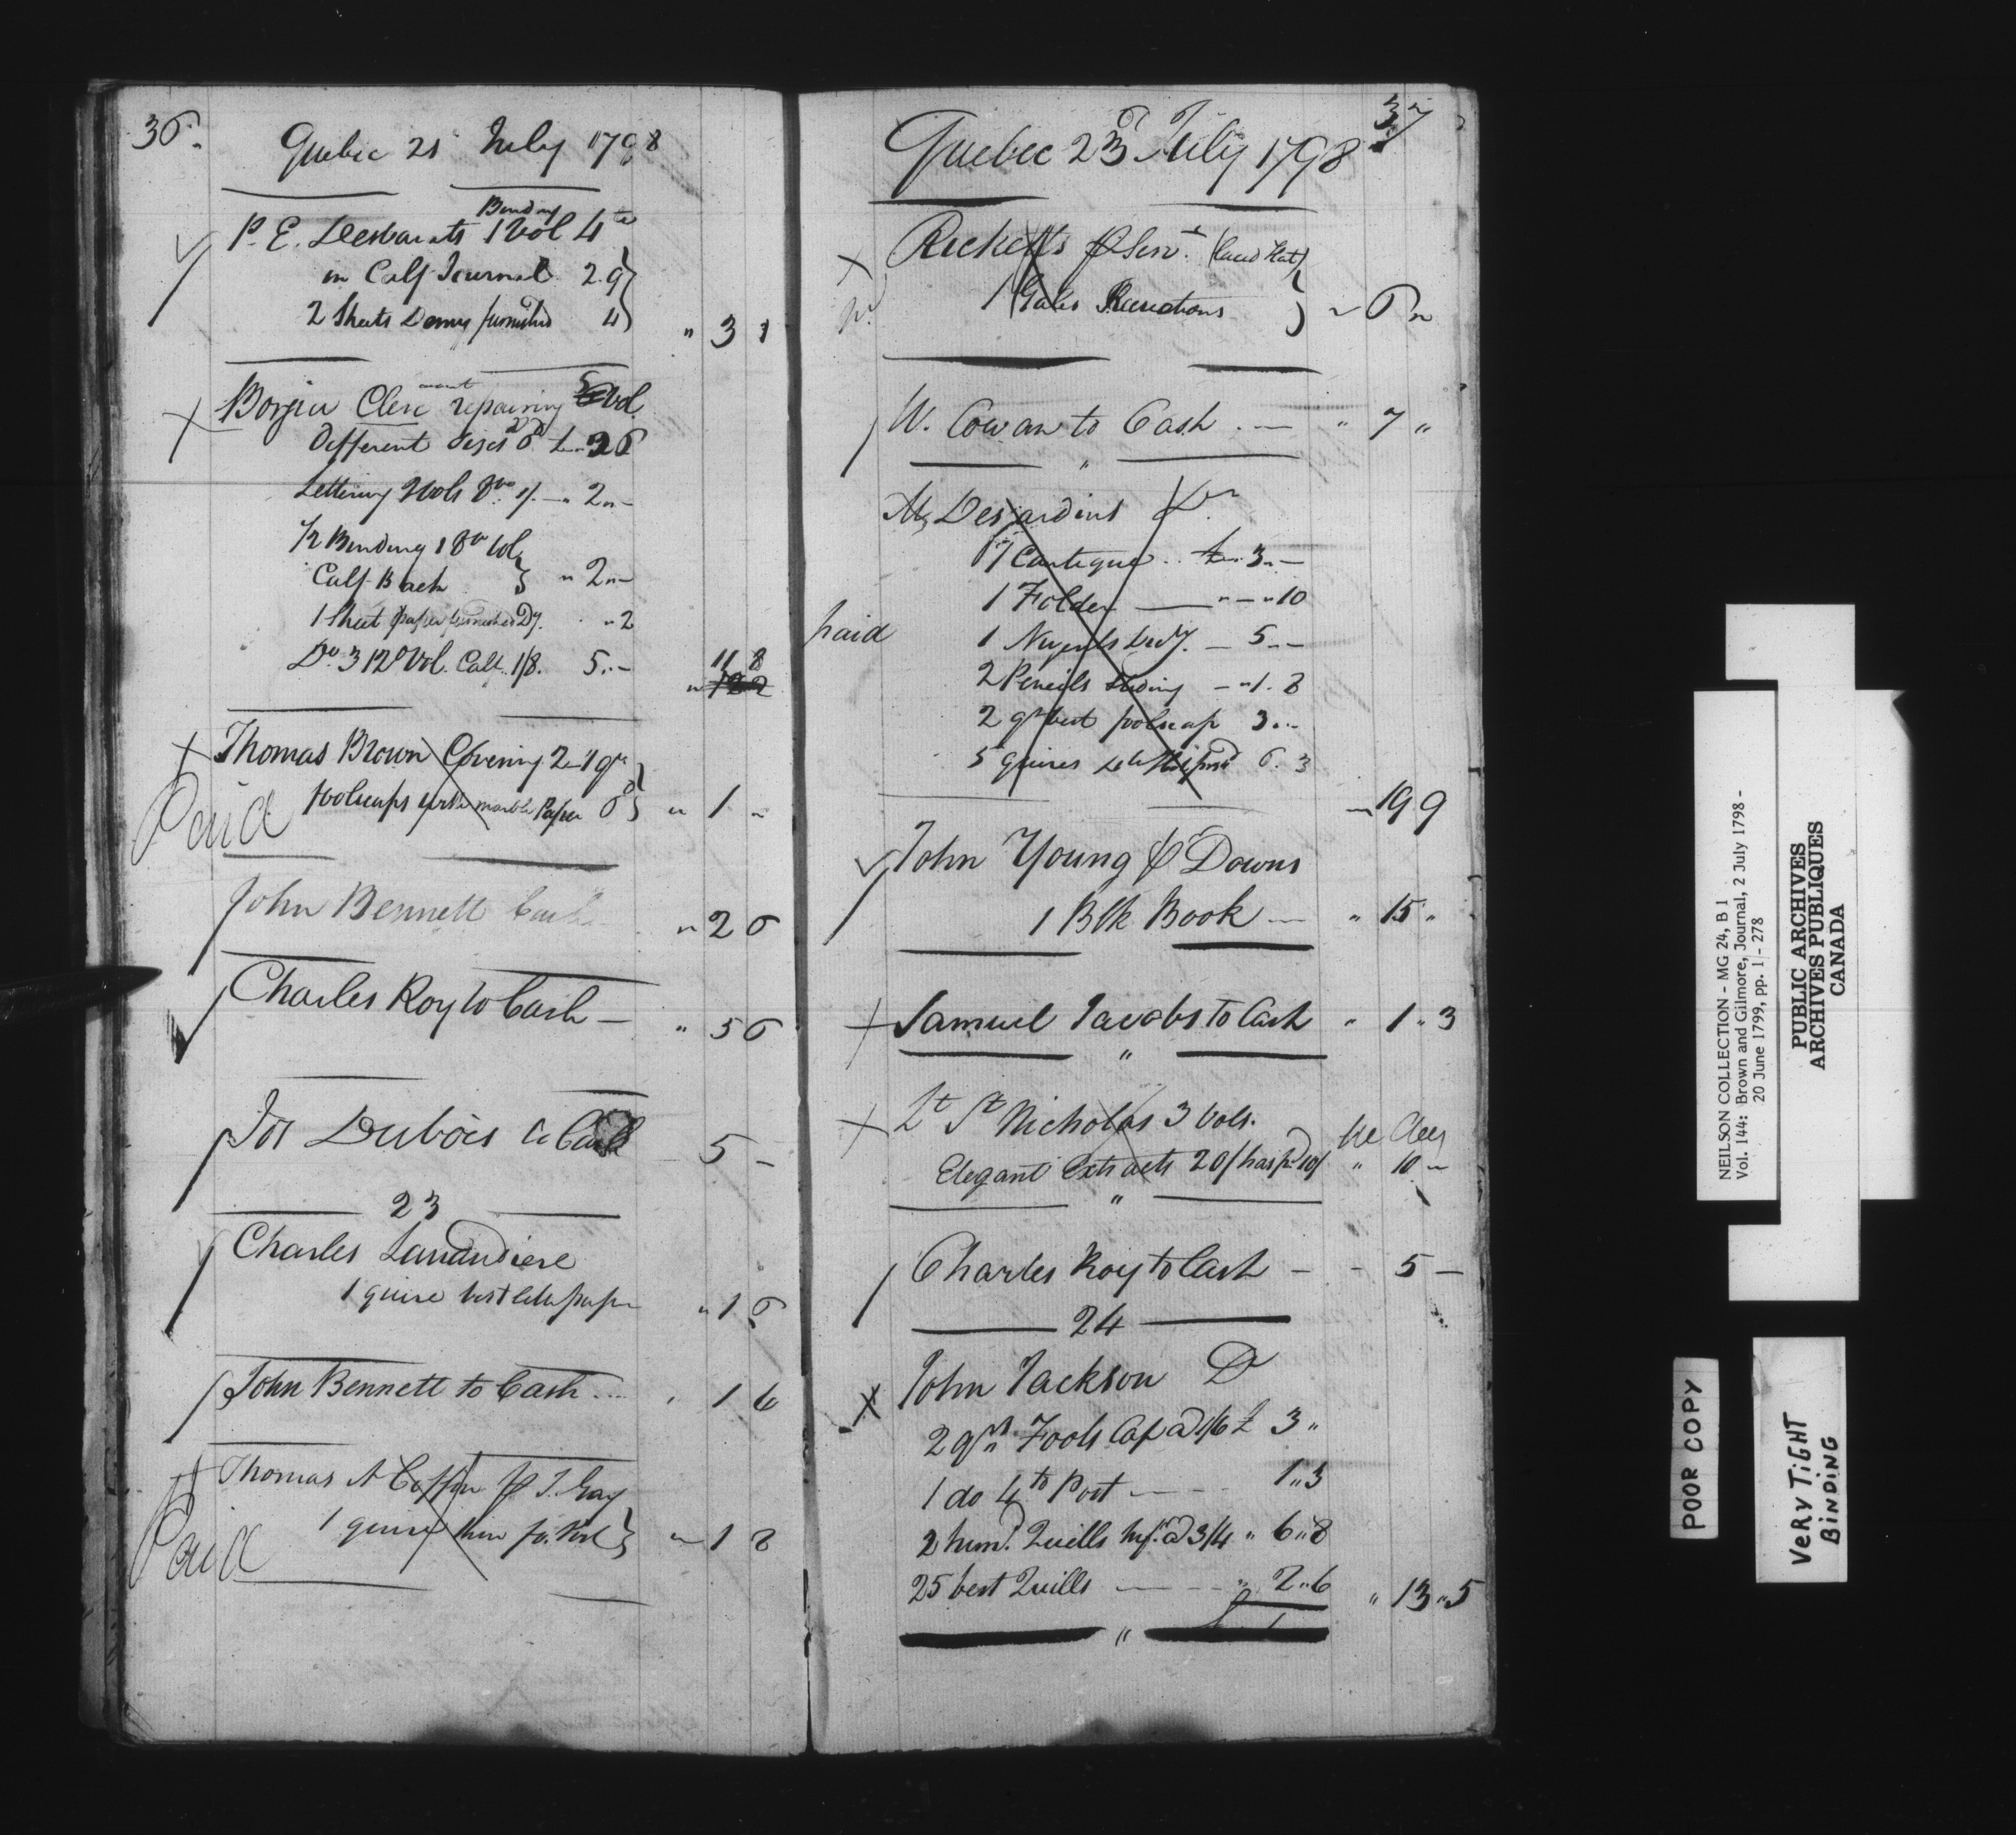 36.
Quebec 21 July 1798
Binding
P. E. Desbarats 1 Vol 4to
in Calf Journal 2.9
2 Sheets Demy furnished 4
" 3 1
Borgia Clerc repairing 5 Vol
different sizes 6d 2 6
Lettering 2 Vols 8vo 1/. — " 2 " –
1/2 Binding 1 8vo Vol
Calf Back " 2 " –
1 Sheet paper furnished Dy. " 2
Do 3 12o Vol. Calf 1/8. 5 " –
11 8
" 12 2
Thomas Brown Covering 2 1 qr
foolscaps with marble Paper 6 " 1 "
Paid
John Bennett Cash " 2 6
Charles Roy to Cash — " 5 6
Jos Dubois to Cash 5 –
23
Charles Lanaudiere
1 quire best letter paper " 1 6
John Bennett to Cash .... " 1 6
Thomas A Coffin P J. Gay
1 quire thin fo. Post " 1 8
Paid
37
Quebec 23d July 1798
Ricketts P Servt. (laced Hat)
1 Recreations " 6 "
W. Cowan to Cash . — " 7 "
M, Desjardins Dr
17 Cantique .. 3 " –
1 Folder — " – " 10
paid
1 Nugents Dicty. – 5 " –
2 Pencils Sliding – " 1 . 8
2 qrs best foolscap 3 " –
5 quires 6 . 3
" 19 9
John Young P Downs
1 Blk Book — " 15 "
Samuel Jacobs to Cash " 1 " 3
Lt St Nicholas 3 Vols.
Elegant Extracts 20/ has pd 10/ " 10 "
Charles Roy to Cash – – 5 —
24
John Jackson Dr
2 qrs Fools Cap @ 1/6 £ 3 "
1 do 4to Post — 1 " 3
2 hund. Quills @ 3/4 " 6 " 8
25 best Quills — " 2 " 6
" 13 " 5
NEILSON COLLECTION - MG 24, B 1
Vol. 144: Brown and Gilmore, Journal, 2 July 1798 -
20 June 1799, pp. 1 - 278
PUBLIC ARCHIVES
ARCHIVES PUBLIQUES
CANADA
POOR COPY
VERY TiGHT
BiNDiNG